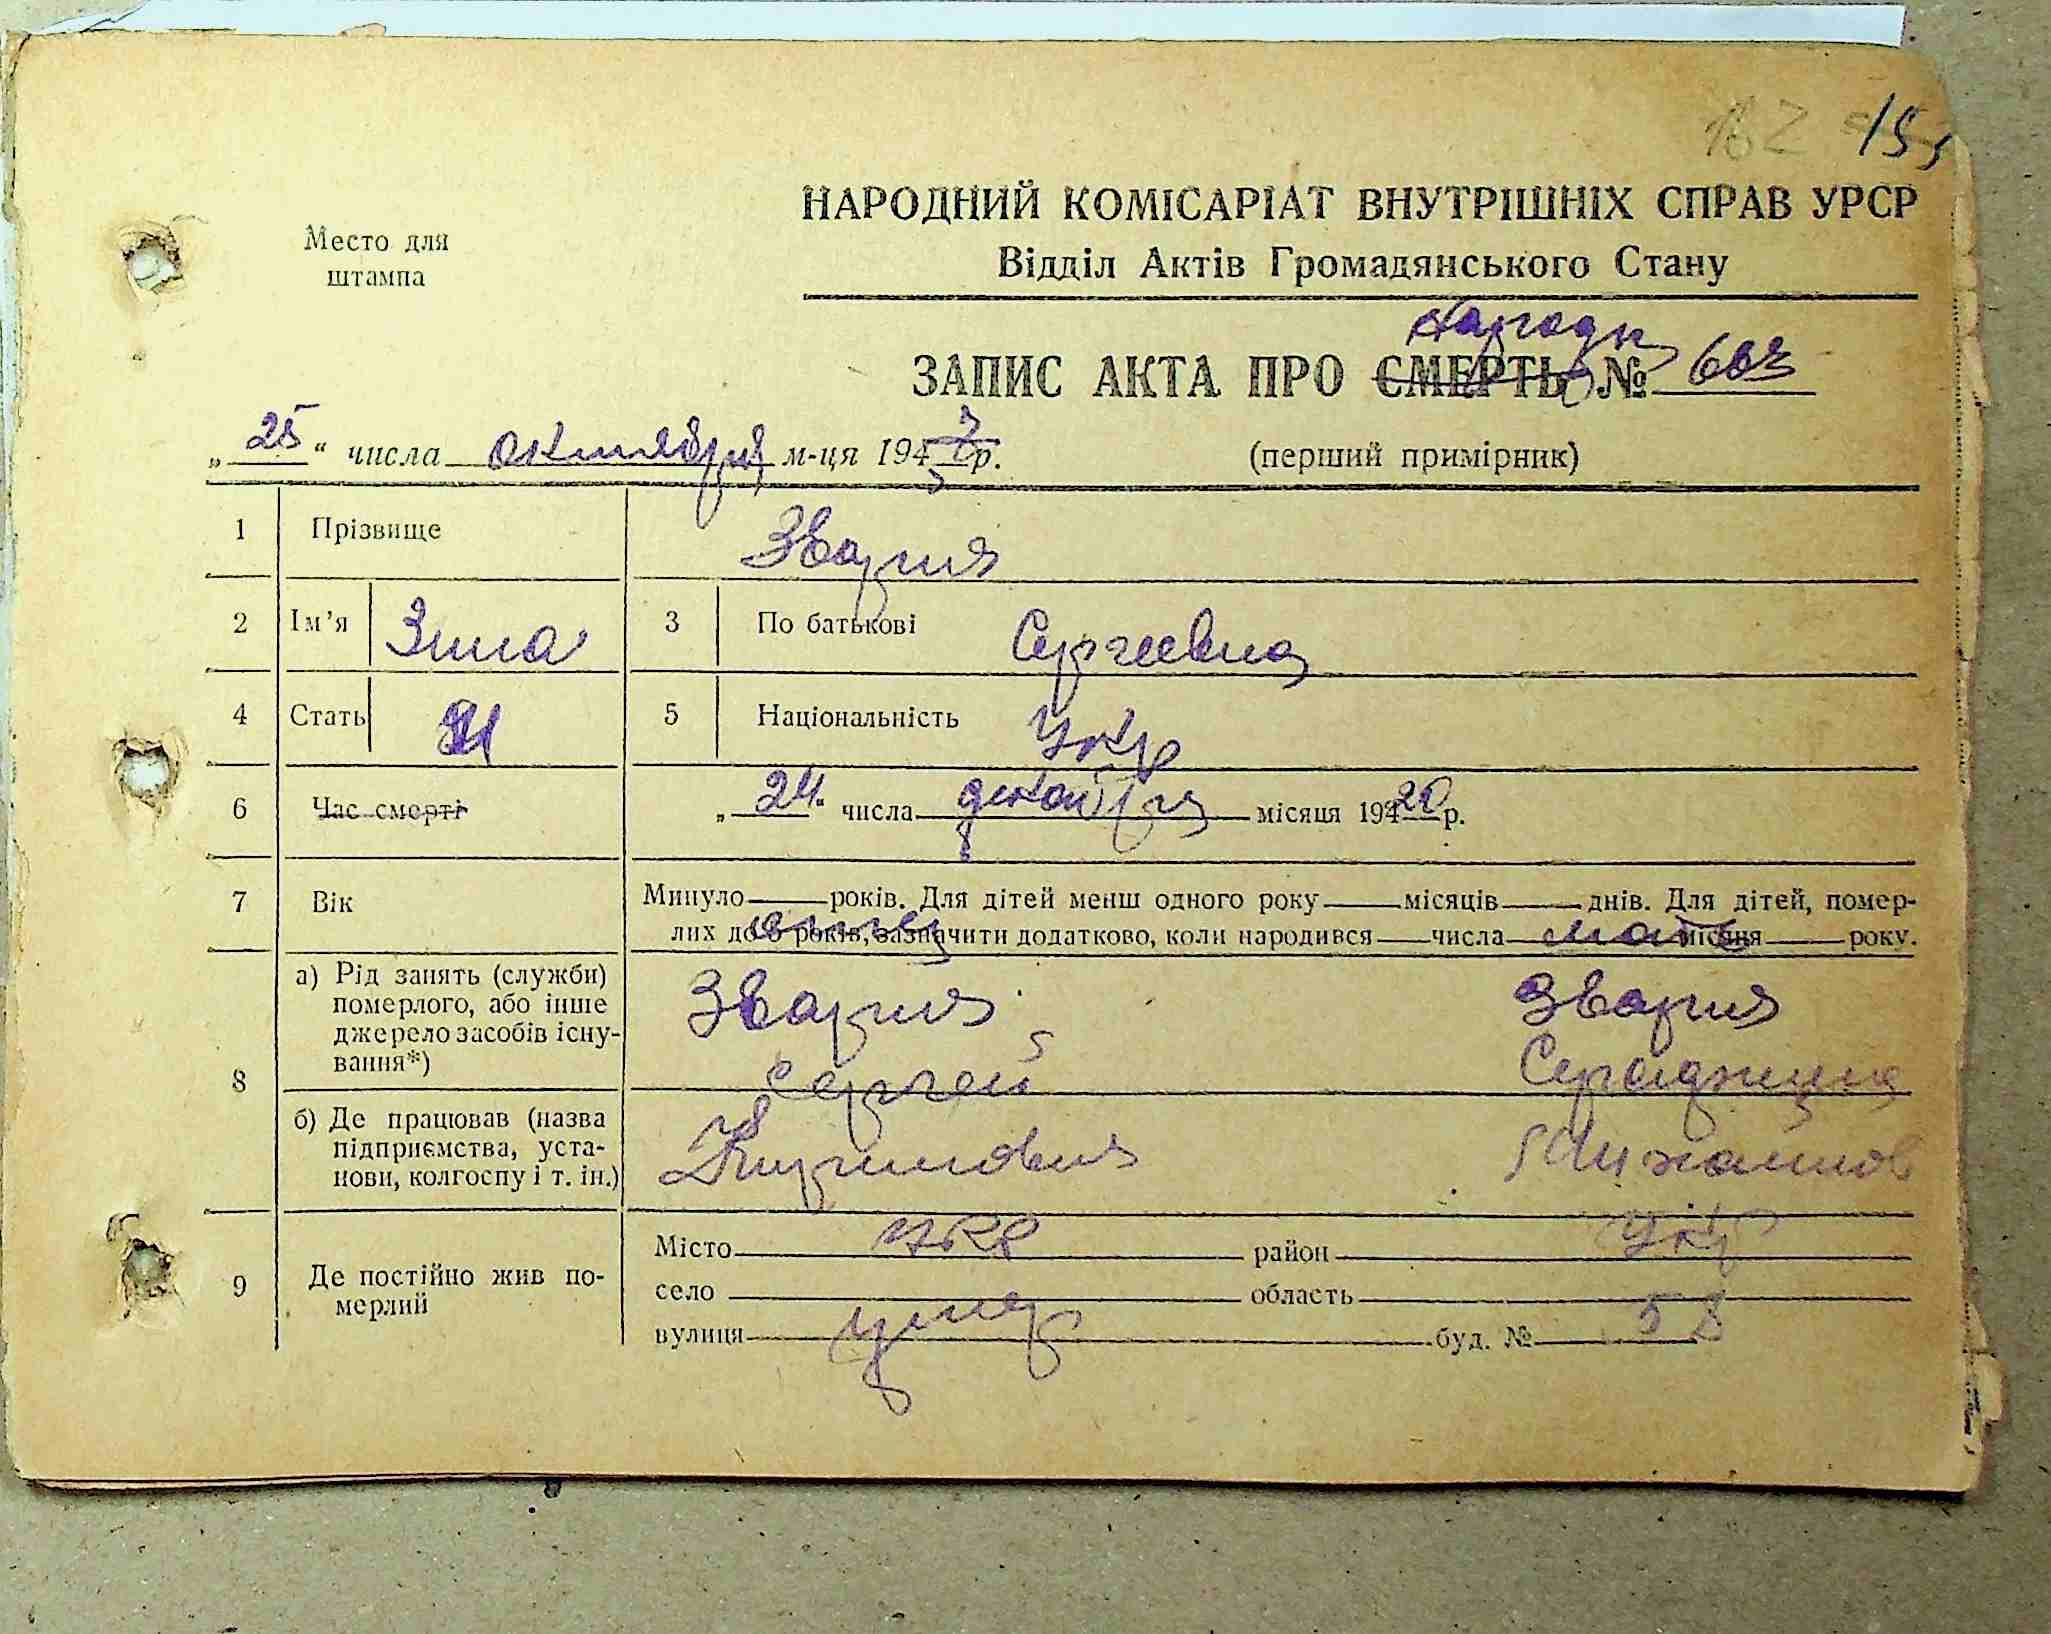 162 155
Место для
штампа
НАРОДНИЙ КОМІСАРІАТ ВНУТРІШНІХ СПРАВ УРСР
Відділ Актів Громадянського Стану
ЗАПИС АКТА ПРО СМЕРТЬ №
„25“ числа октября м-ця 194 р.
(перший примірник)
1 Прізвище Зварич
2 Ім’я Зина 3 По батькові Сергеевна
4 Стать 5 Національність Укр
6 Час смерті „24“ числа декабря місяця 194 20 р.
7 Вік Минуло ___ років. Для дітей менш одного року ___ місяців ___ днів. Для дітей, помер-
лих до 5 років, зазначити додатково, коли народився ___ числа ___ місяця ___ року.
отец мать
8 а) Рід занять (служби)
померлого, або інше
джерело засобів існу-
вання*)
Зварич Зварич
Сергей
б) Де працював (назва
підприємства, уста-
нови, колгоспу і т. ін.)
9 Де постійно жив по-
мерлий
Місто укр район Укр
село ___ область
вулиця ___ буд. №